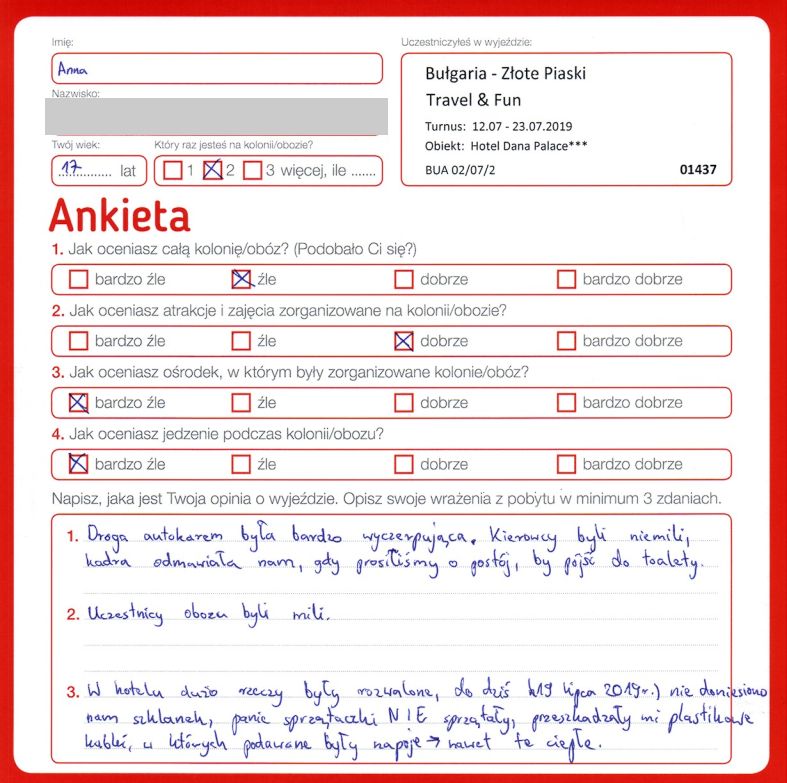 Imię:
Uczestniczyłeś w wyjeździe:
Anna
Bułgaria - Złote Piaski
Nazwisko:
Travel & Fun
Turnus: 12.07 - 23.07.2019
Twój wiek:
Który raz jesteś na kolonii/obozie?
Obiekt: Hotel Dana Palace***
17 lat
1 2 3 więcej, ile .......
BUA 02/07/2
01437
Ankieta
1. Jak oceniasz całą kolonię/obóz? (Podobało Ci się?)
bardzo źle źle dobrze bardzo dobrze
2. Jak oceniasz atrakcje i zajęcia zorganizowane na kolonii/obozie?
bardzo źle źle dobrze bardzo dobrze
3. Jak oceniasz ośrodek, w którym były zorganizowane kolonie/obóz?
bardzo źle źle dobrze bardzo dobrze
4. Jak oceniasz jedzenie podczas kolonii/obozu?
bardzo źle źle dobrze bardzo dobrze
Napisz, jaka jest Twoja opinia o wyjeździe. Opisz swoje wrażenia z pobytu w minimum 3 zdaniach.
1. Droga autokarem była bardzo wyczerpująca. Kierowcy byli niemili,
kadra odmawiała nam, gdy prosiliśmy o postój, by pójść do toalety.
2. Uczestnicy obozu byli mili.
3. W hotelu dużo rzeczy były rozwalone, do dziś (19 lipca 2019r.) nie doniesiono
nam szklanek, panie sprzątaczki NIE sprzątały, przeszkadzały mi plastikowe
kubki, w których podawane były napoje → nawet te ciepłe.